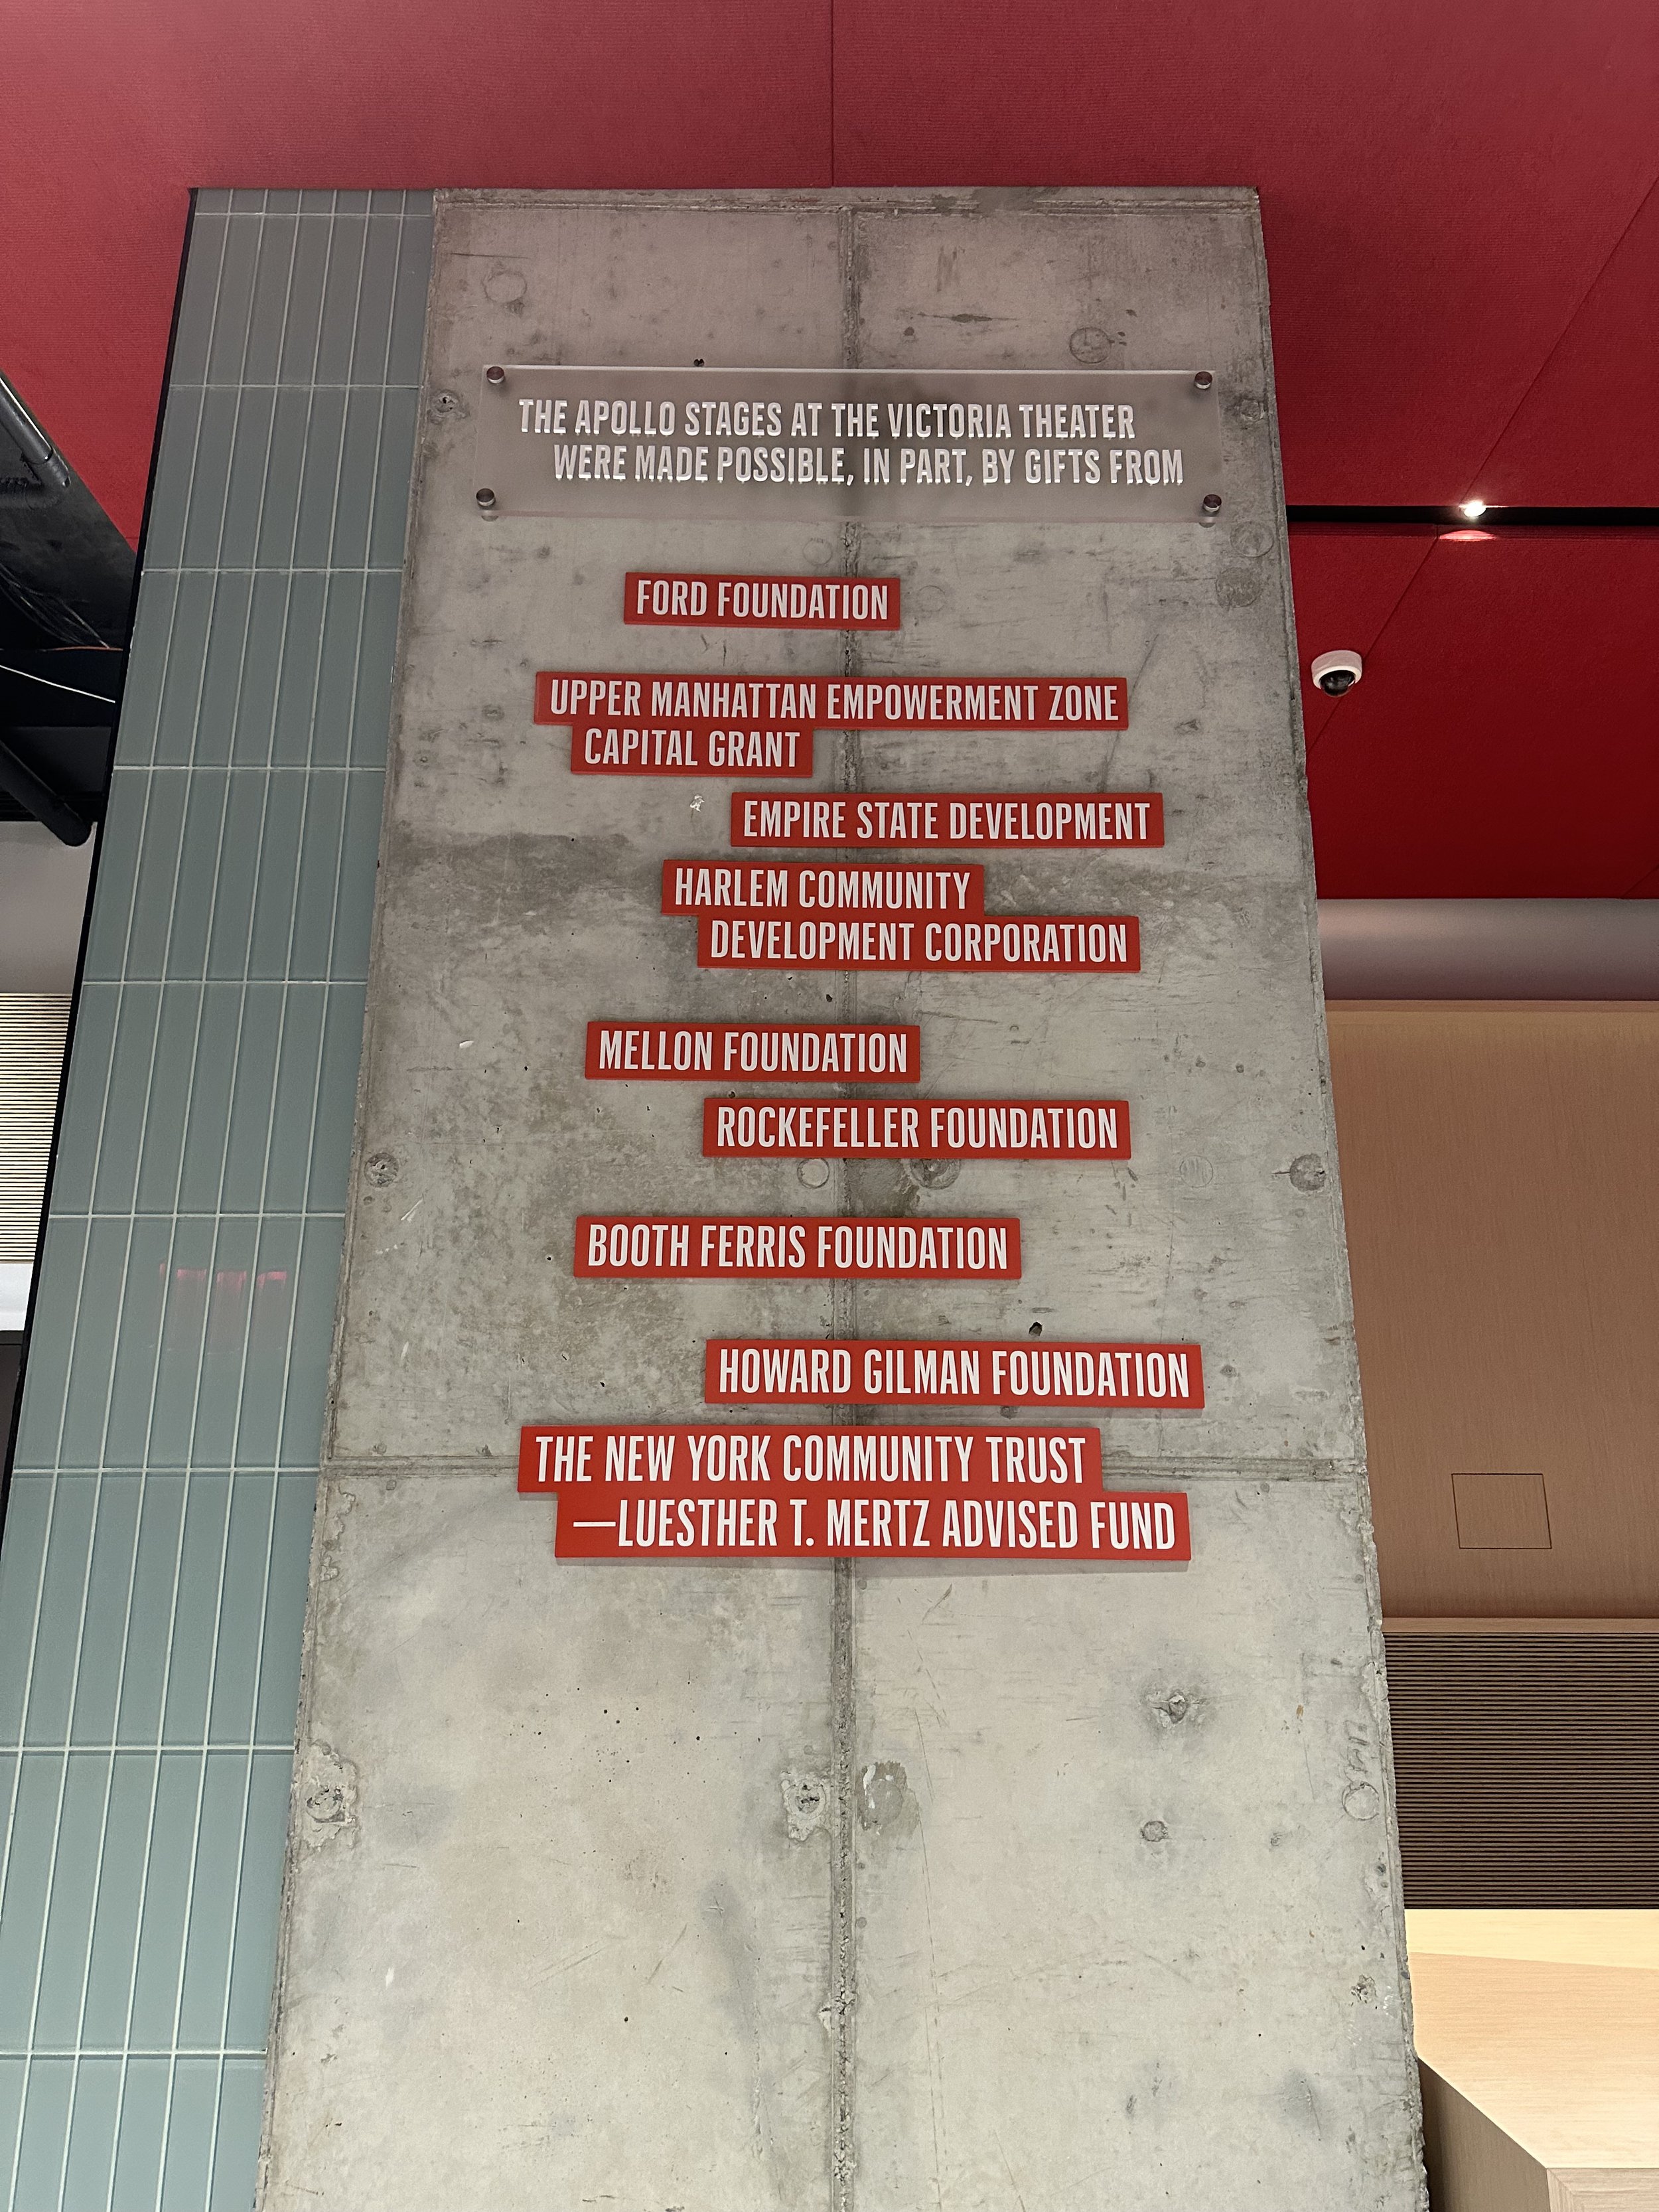 THE APOLLO STAGES AT THE VICTORIA THEATER
WERE MADE POSSIBLE, IN PART, BY GIFTS FROM
FORD FOUNDATION
UPPER MANHATTAN EMPOWERMENT ZONE
CAPITAL GRANT
EMPIRE STATE DEVELOPMENT
HARLEM COMMUNITY
DEVELOPMENT CORPORATION
MELLON FOUNDATION
ROCKEFELLER FOUNDATION
BOOTH FERRIS FOUNDATION
HOWARD GILMAN FOUNDATION
THE NEW YORK COMMUNITY TRUST
—LUESTHER T. MERTZ ADVISED FUND